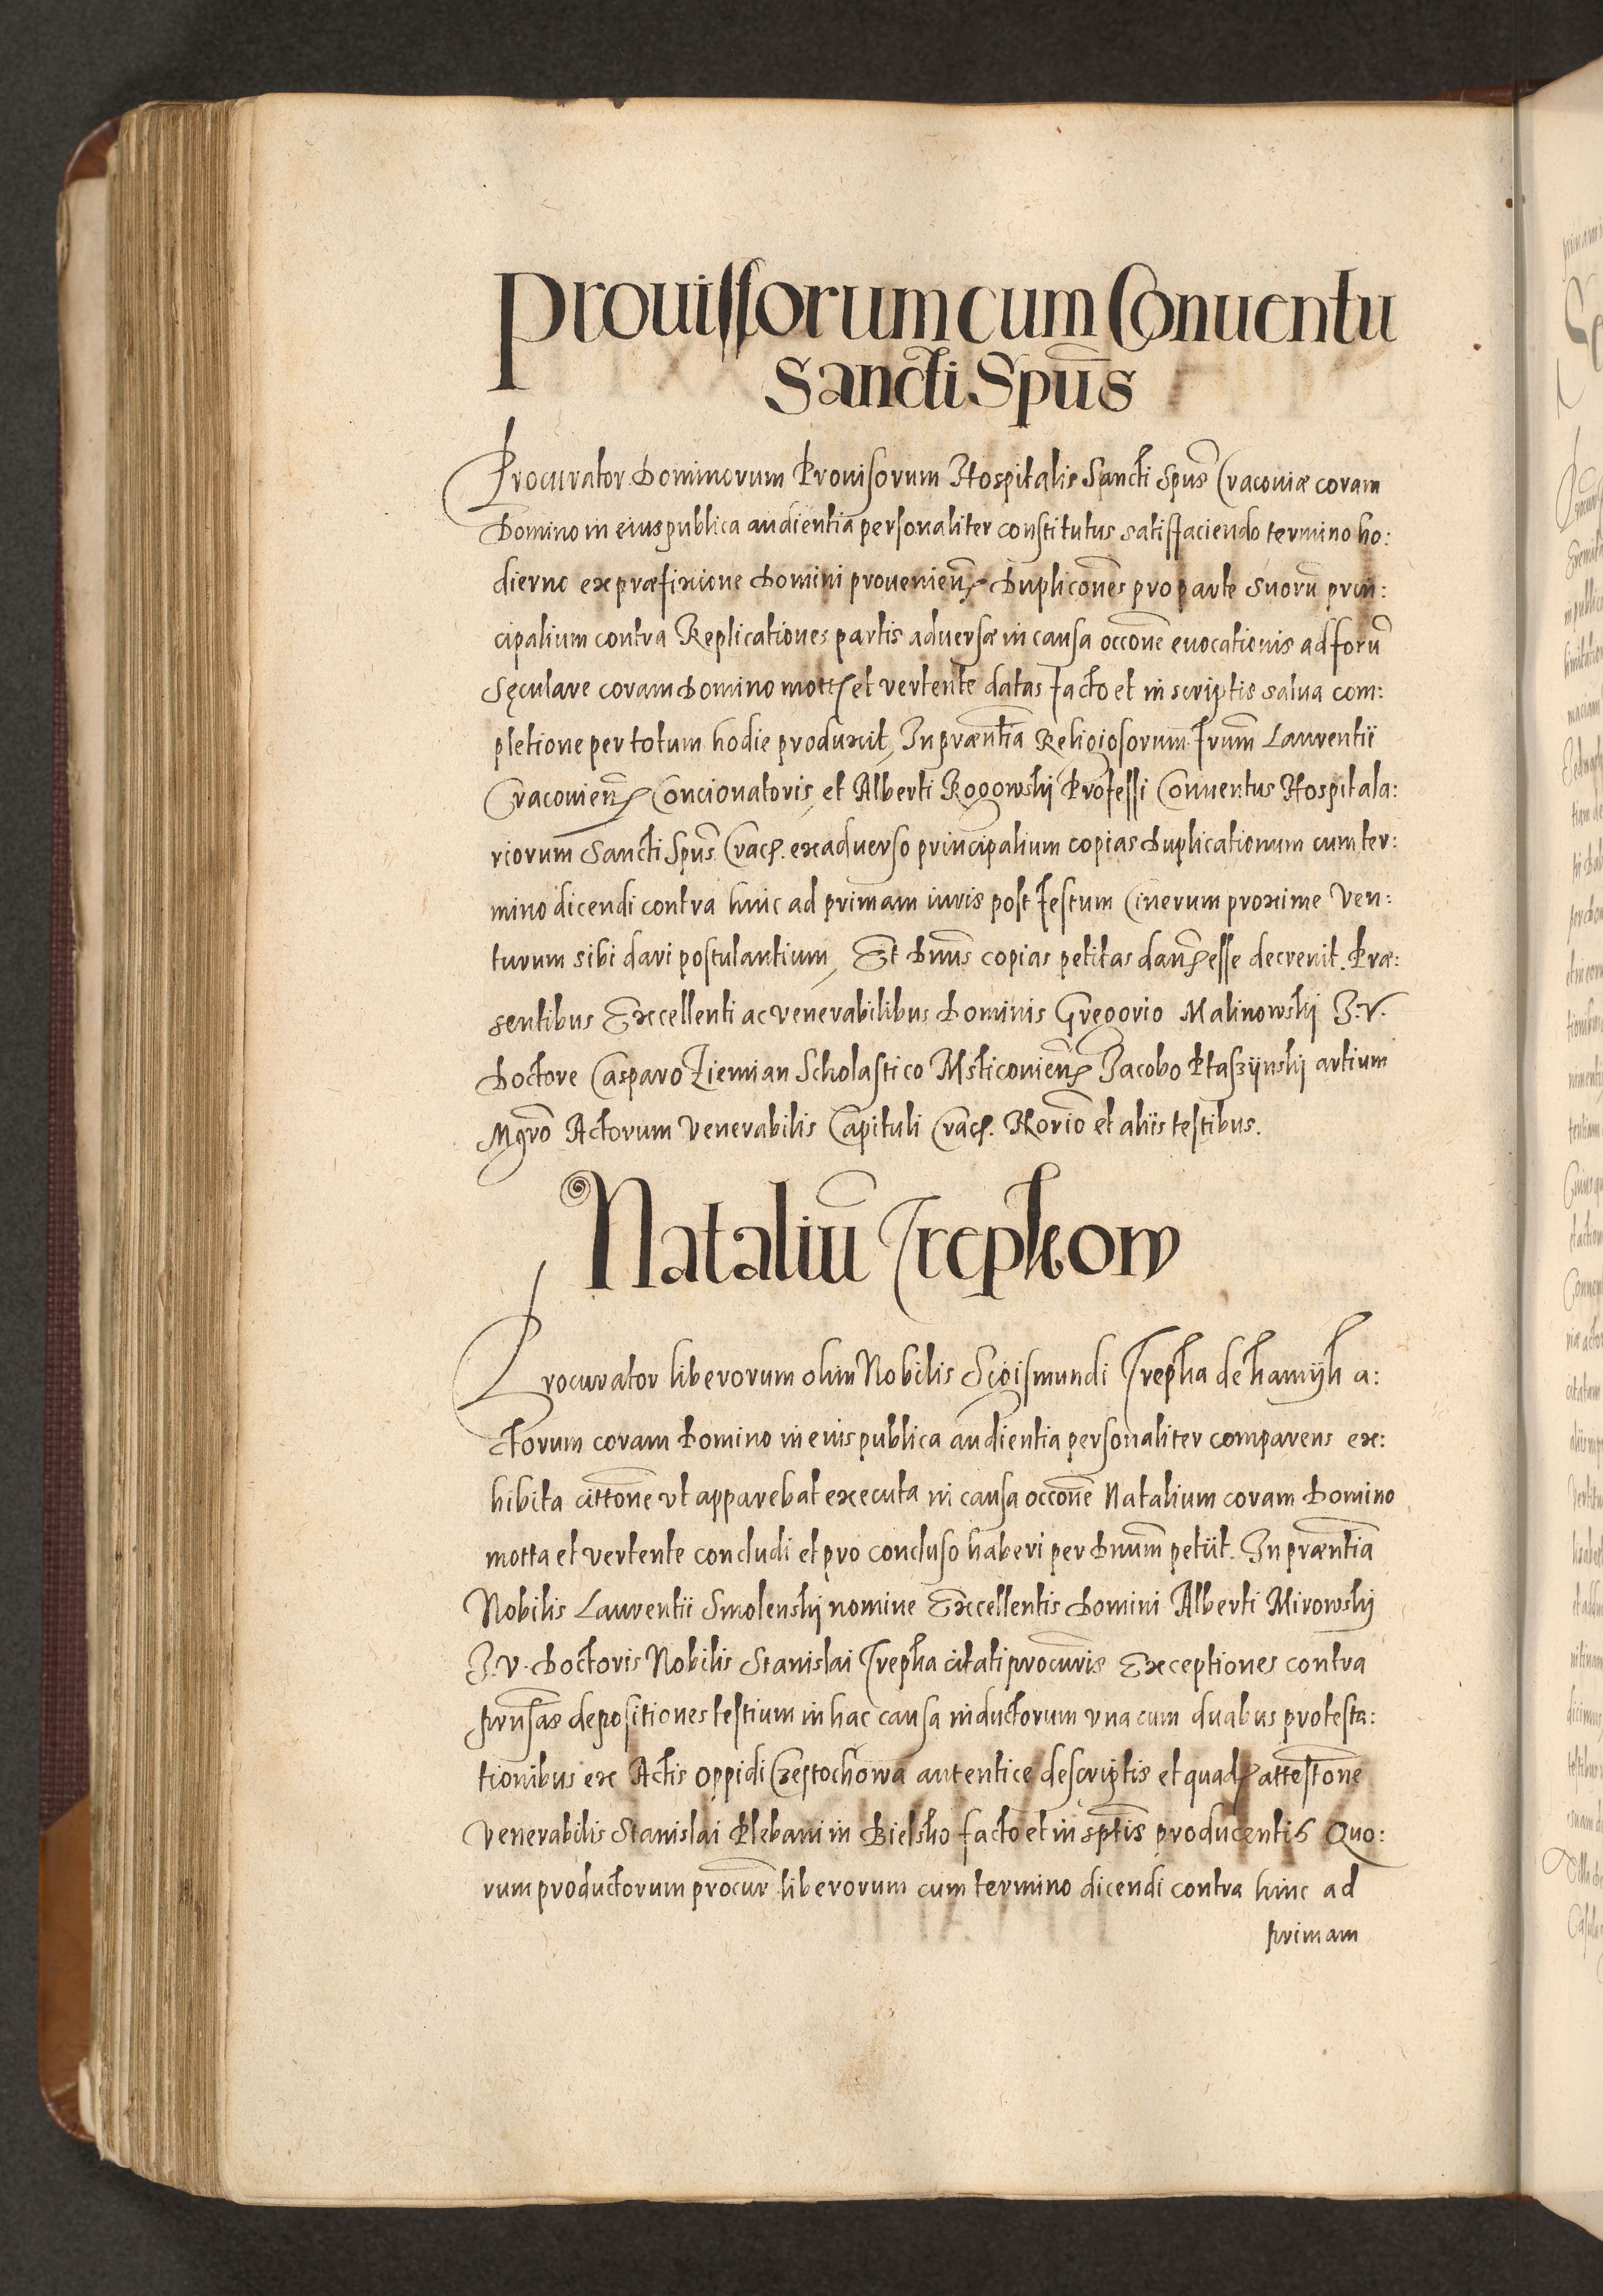 Prouissorum cum Conuentu
Sancti Spūs
Procurator Dominorum Prouisorum Hospitalis Sancti Spūs Cracouiæ coram
Domino in eius publica audientia personaliter constitutus satisfaciendo termino ho:
dierno ex præfixione Domini prouenieñ Dupliconēs pro parte suorū prin:
cipalium contra Replicationes partis aduersæ in causa occōne euocationis ad forū
Sęculare coram Domino mott et vertente datas facto et in scriptis salua com:
pletione per totum hodie produxit, In præntīa Religiosorum frum̄ Laurentii
Cracouieñ Concionatoris, et Alberti Rogowskij Professi Conuentus Hospitala:
riorum Sancti Spūs Crac. ex aduerso principalium copias Duplicationum cum ter:
mino dicendi contra hinc ad primam iuris post festum Cinerum proxime ven:
turum sibi dari postulantium, Et Dnūs copias petitas dañ esse decreuit. Præ:
sentibus Excellenti ac venerabilibus Dominis Gregorio Malinowskij J. V.
Doctore Casparo Ziemian Scholastico Msticouieñ Jacobo Ptaszijnskij artium
Mgrō Actorum Venerabilis Capituli Crac. Norīo et aliis testibus.
Nataliū Trepkow
Procurator liberorum olim Nobilis Sigismundi Trepka de kamyk a:
ctorum coram Domino in eius publica audientia personaliter comparens ex:
hibita cittōne vt apparebat executa in causa occōne Natalium coram Domino
motta et vertente concludi et pro concluso haberi per Dnūm petiit. In præntīa
Nobilis Laurentii Smolenskij nomine Excellentis Domini Alberti Mirowskij
J. V. Doctoris Nobilis Stanislai Trepka citati procuris Exceptiones contra
prnsas depositiones testium in hac causa inductorum vna cum duabus protesta:
tionibus ex Actis oppidi Czestochowa autentice descriptis et quad attestōne
Venerabilis Stanislai Plebani in Bielsko facto et in sptis producentis Quo:
rum productorum procur liberorum cum termino dicendi contra hinc ad
primam